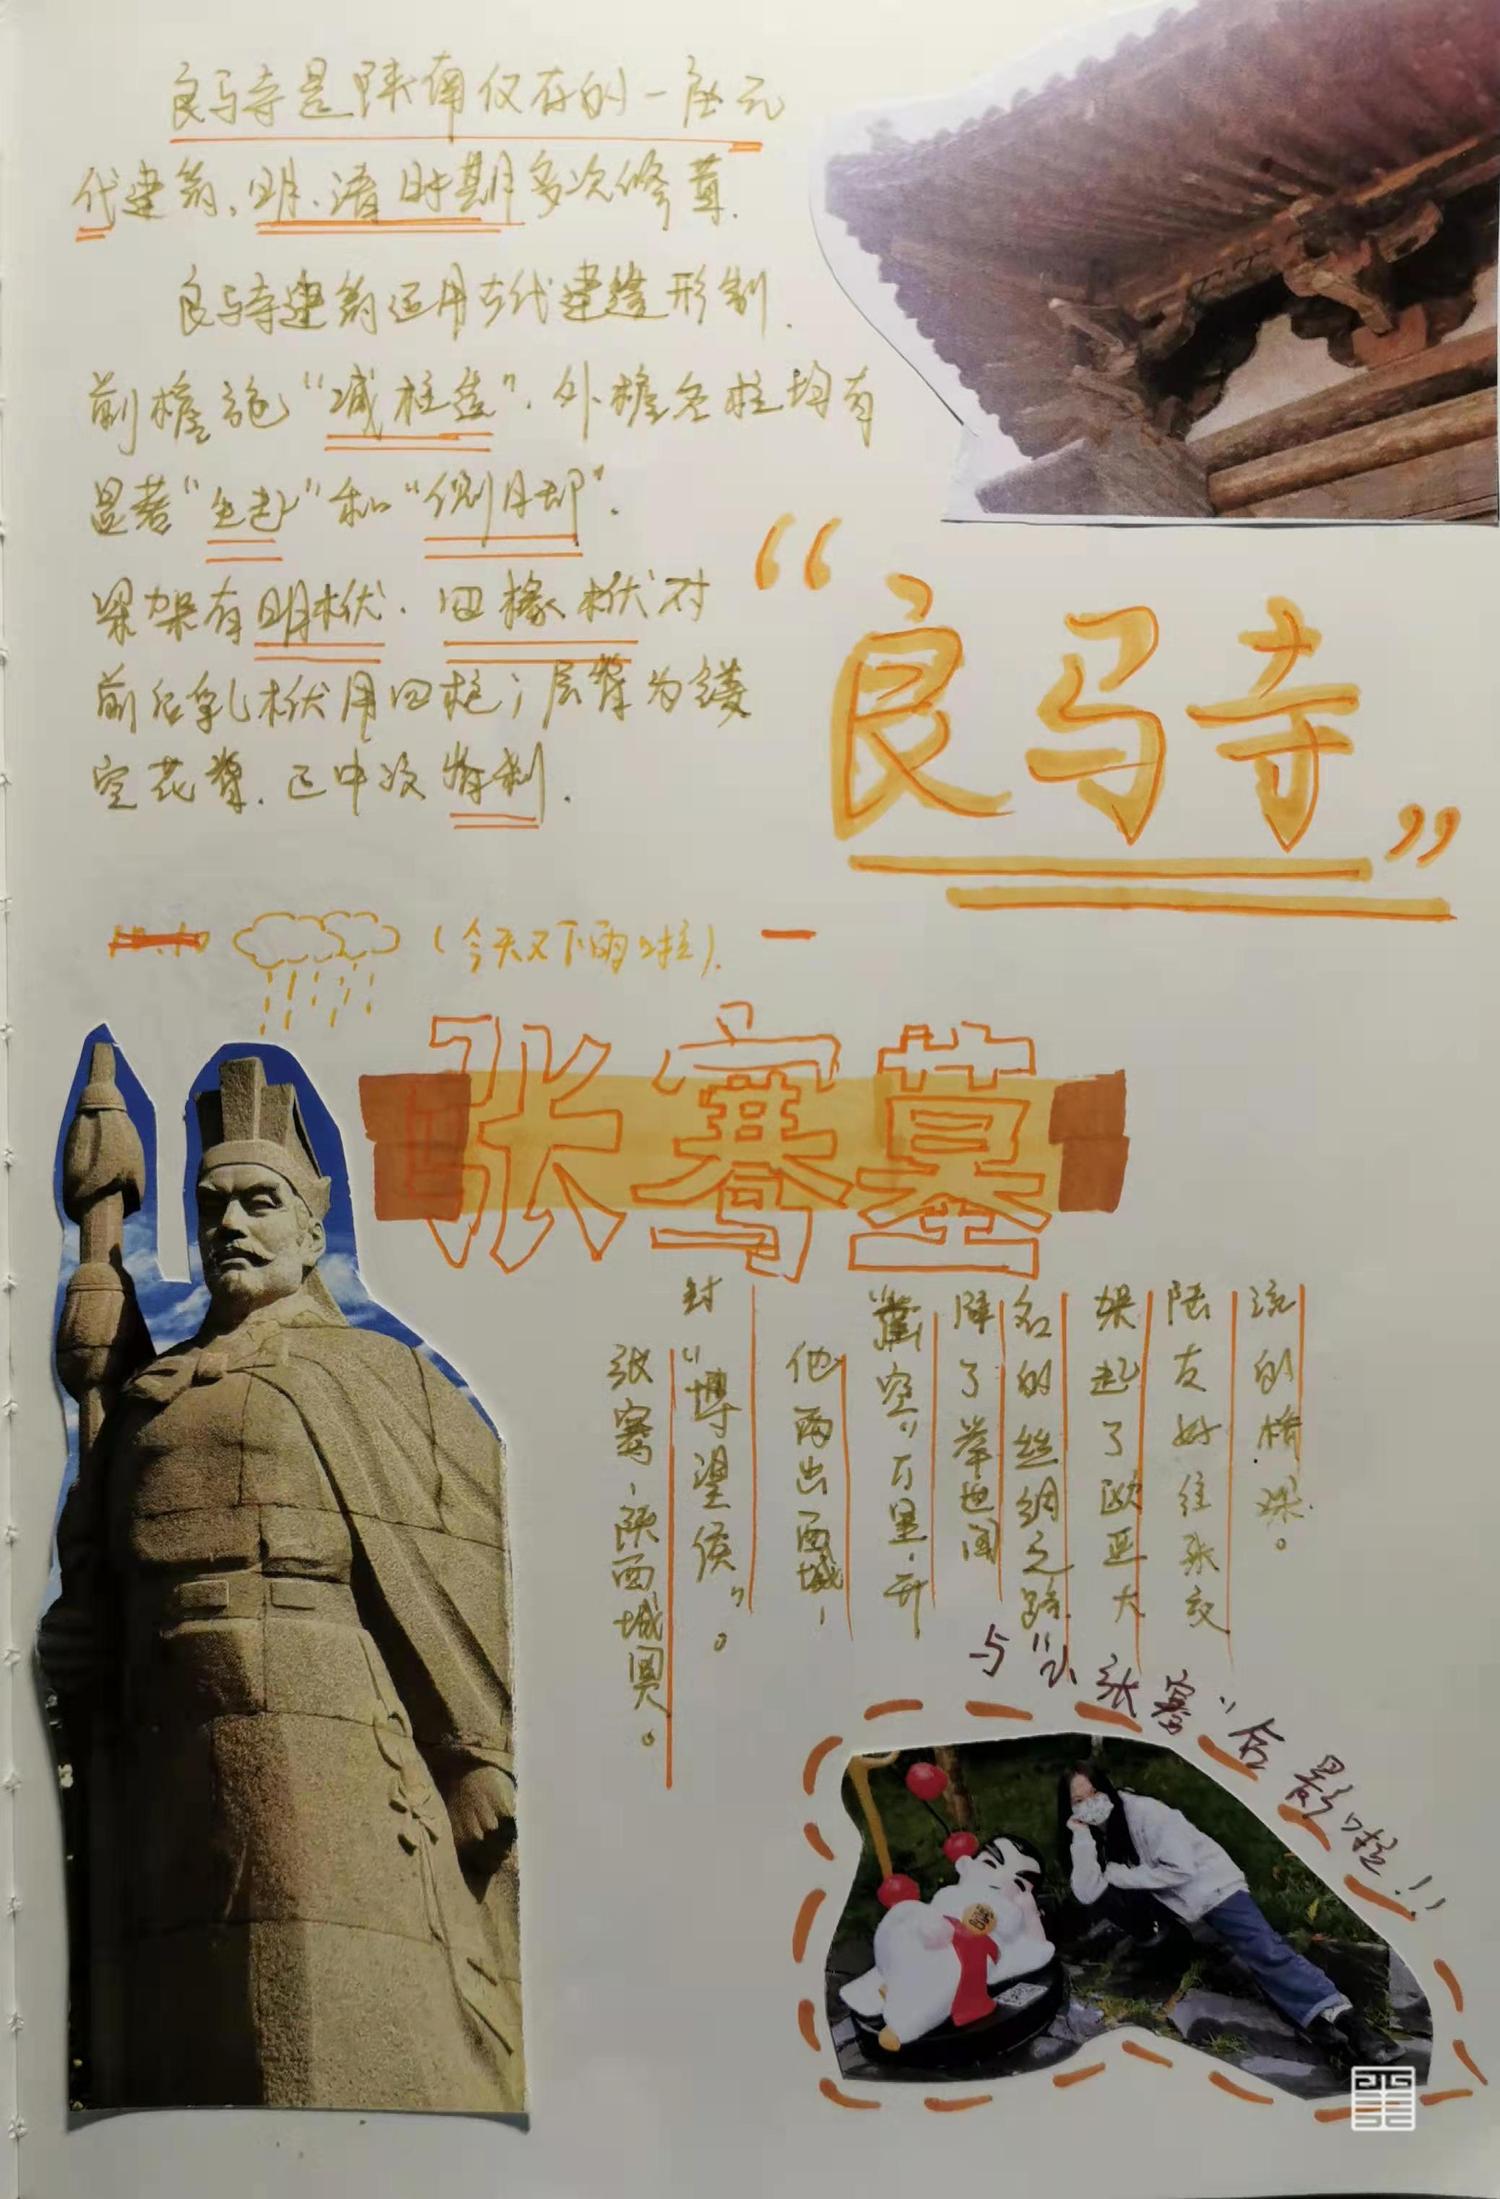 良马寺是陕南仅存的一座元
代建筑,明、清时期多次修葺.
良马寺建筑运用古代建造形制.
前檐施“减柱造”.外檐各柱均有
显著“生起”和“侧脚”.
梁架有明栿.四椽栿对
前后乳栿用四柱;层脊为镂
空花脊.正中设脊刹.
“良马寺”
(今天又下雨啦).
张骞墓
张骞,陕西城固。
封“博望侯”。
他两出西域,
“凿空”万里,开
辟了举世闻
名的丝绸之路
架起了欧亚大
陆友好往张交
流的桥梁。
与“小张骞”合影啦!!